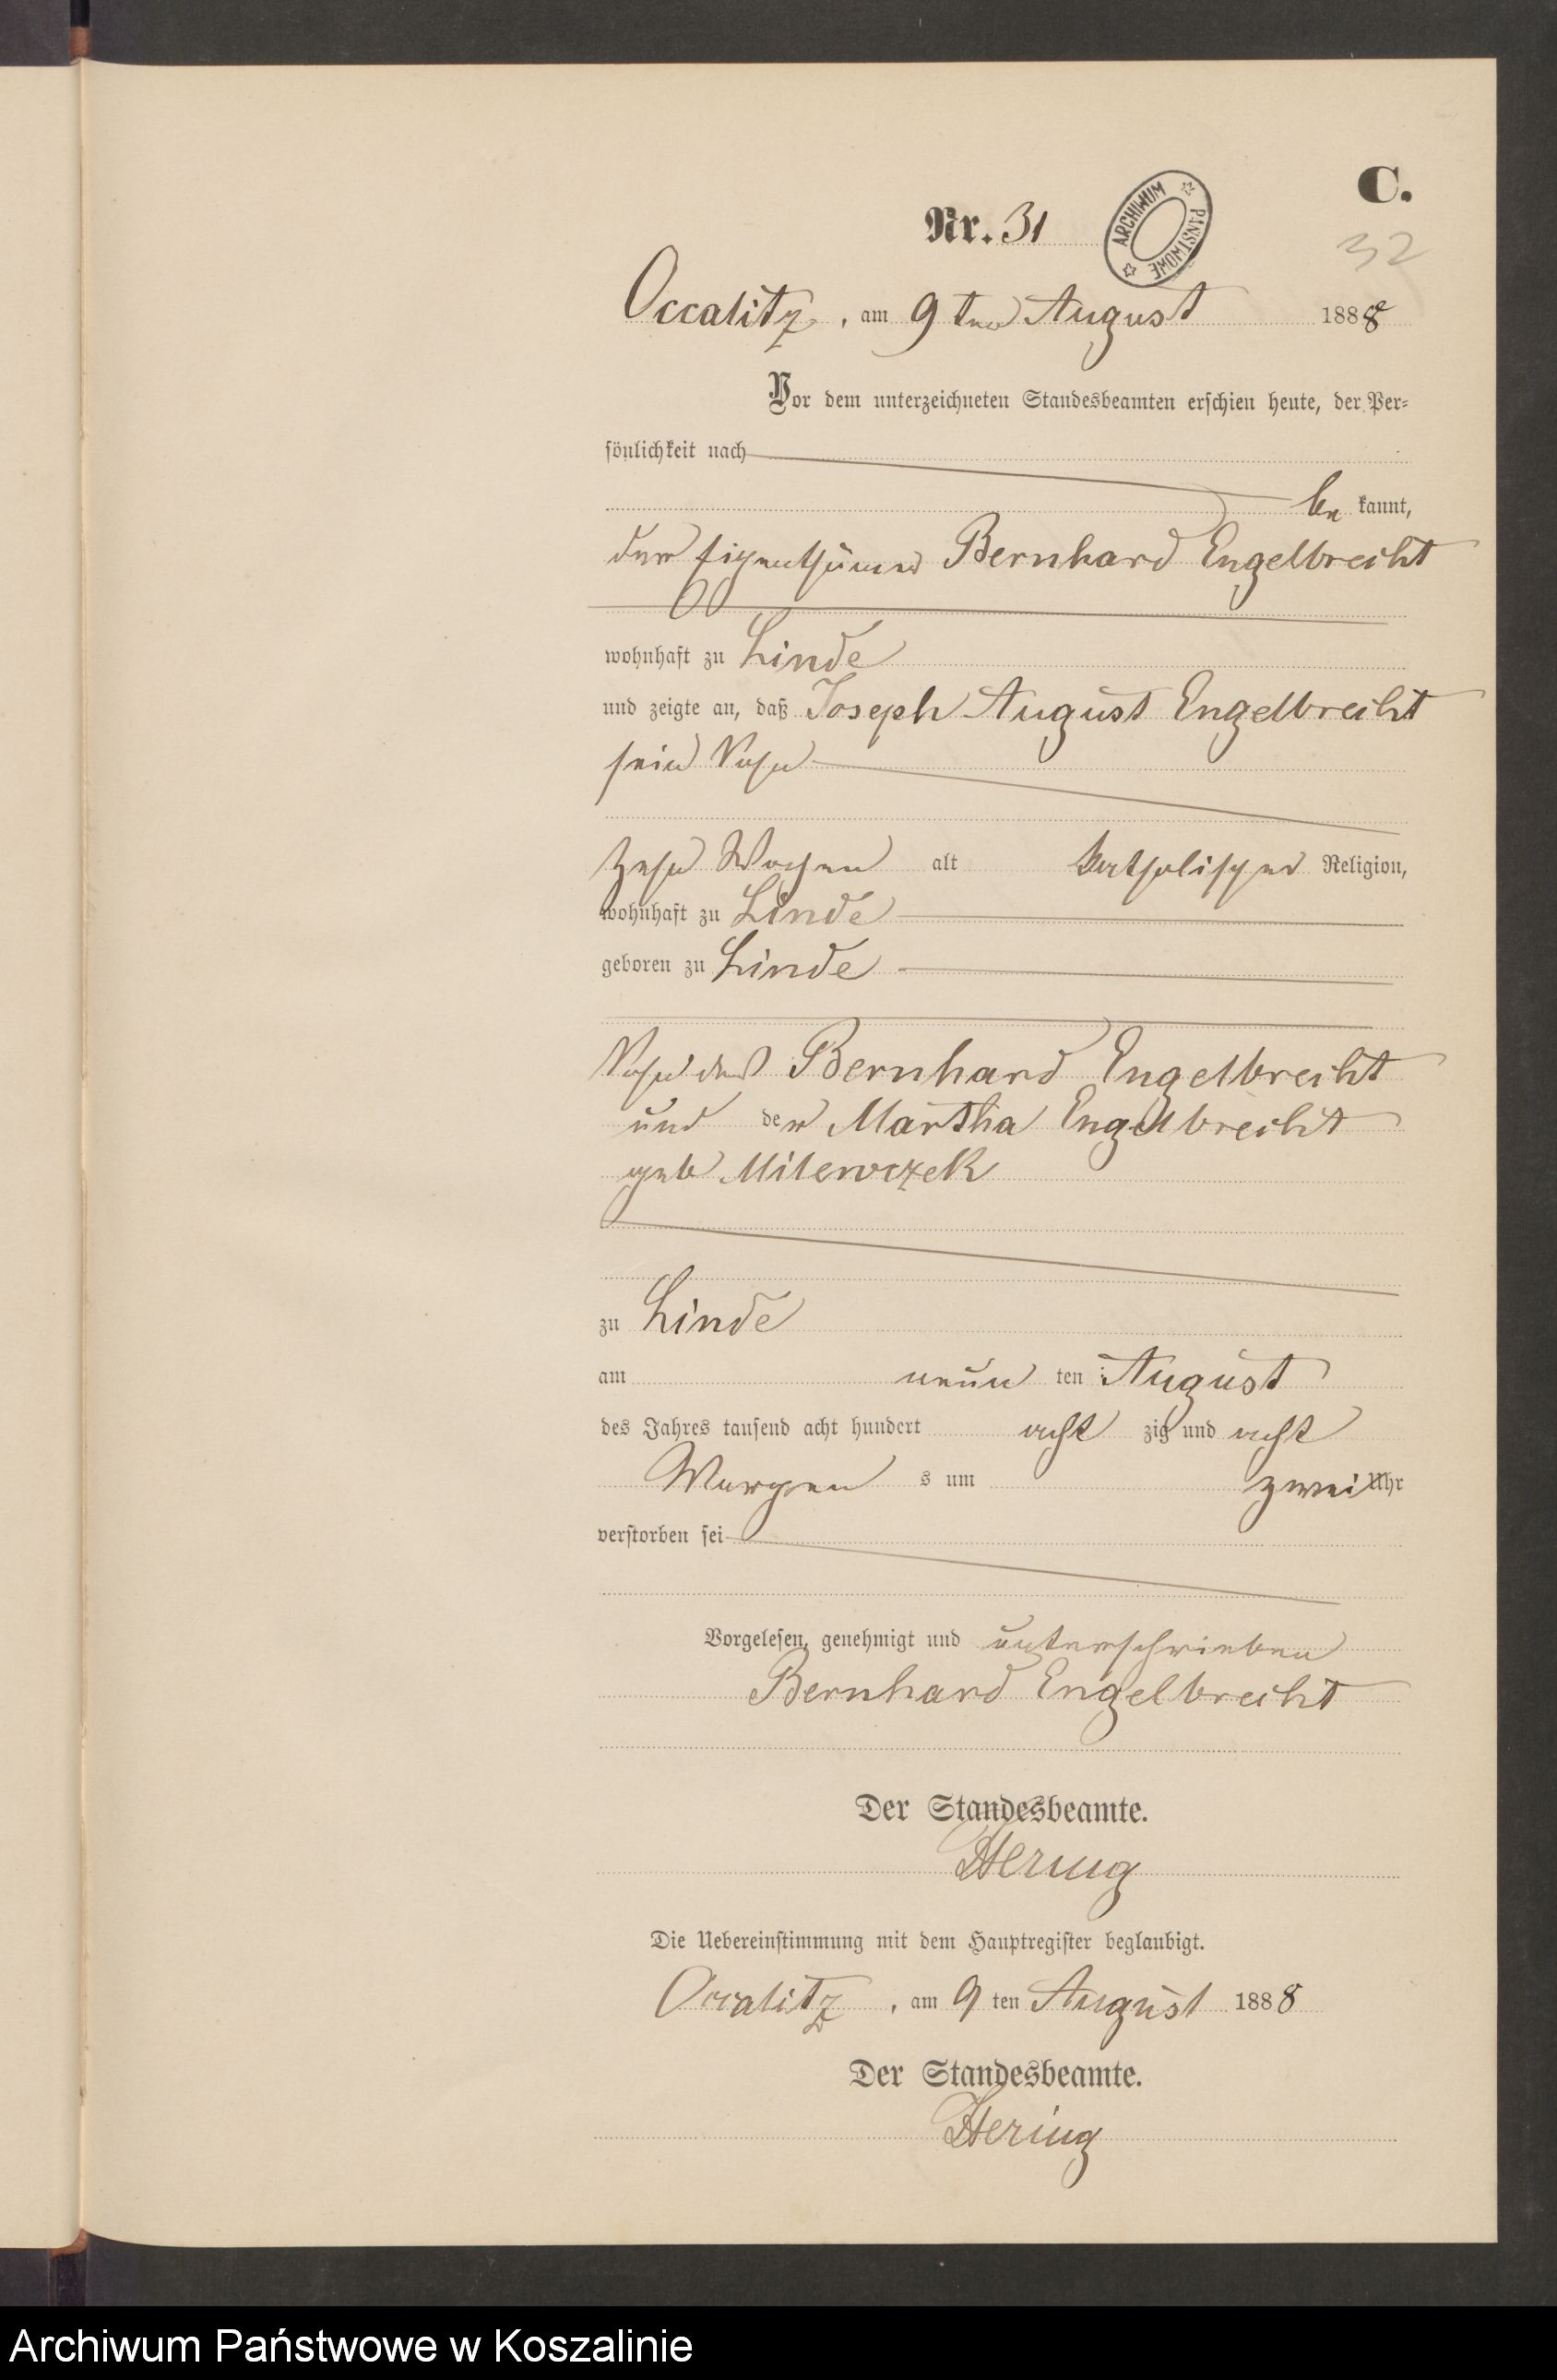 C.
Nr. 31
ARCHIWUM PAŃSTWOWE
32
Occalitz, am 9 ten August 1888
Vor dem unterzeichneten Standesbeamten erschien heute, der Per-
sönlichkeit nach
be kannt,
der Eigenthümer Bernhard Engelbrecht
wohnhaft zu Linde
und zeigte an, daß Joseph August Engelbrecht
sein Sohn
zehn Wochen alt katholischer Religion,
wohnhaft zu Linde
geboren zu Linde
Sohn des Bernhard Engelbrecht
und der Martha Engelbrecht
geb Milewczek
zu Linde
am neun ten August
des Jahres tausend acht hundert acht zig und acht
Morgen s um zwei Uhr
verstorben sei
Vorgelesen, genehmigt und unterschrieben
Bernhard Engelbrecht
Der Standesbeamte.
Hering
Die Uebereinstimmung mit dem Hauptregister beglaubigt.
Occalitz, am 9 ten August 1888
Der Standesbeamte.
Hering
Archiwum Państwowe w Koszalinie